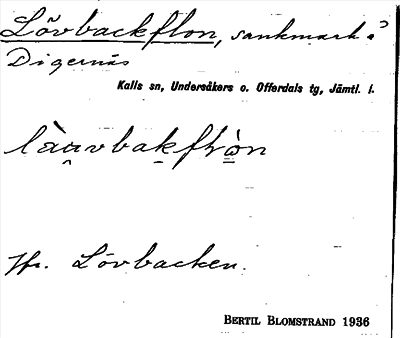 Lövbackflon, sankmark å
Digernäs
Kalls sn, Undersåkers o. Offerdals tg, Jämtl. l.
Jfr. Lövbacken.
BERTIL BLOMSTRAND 1936